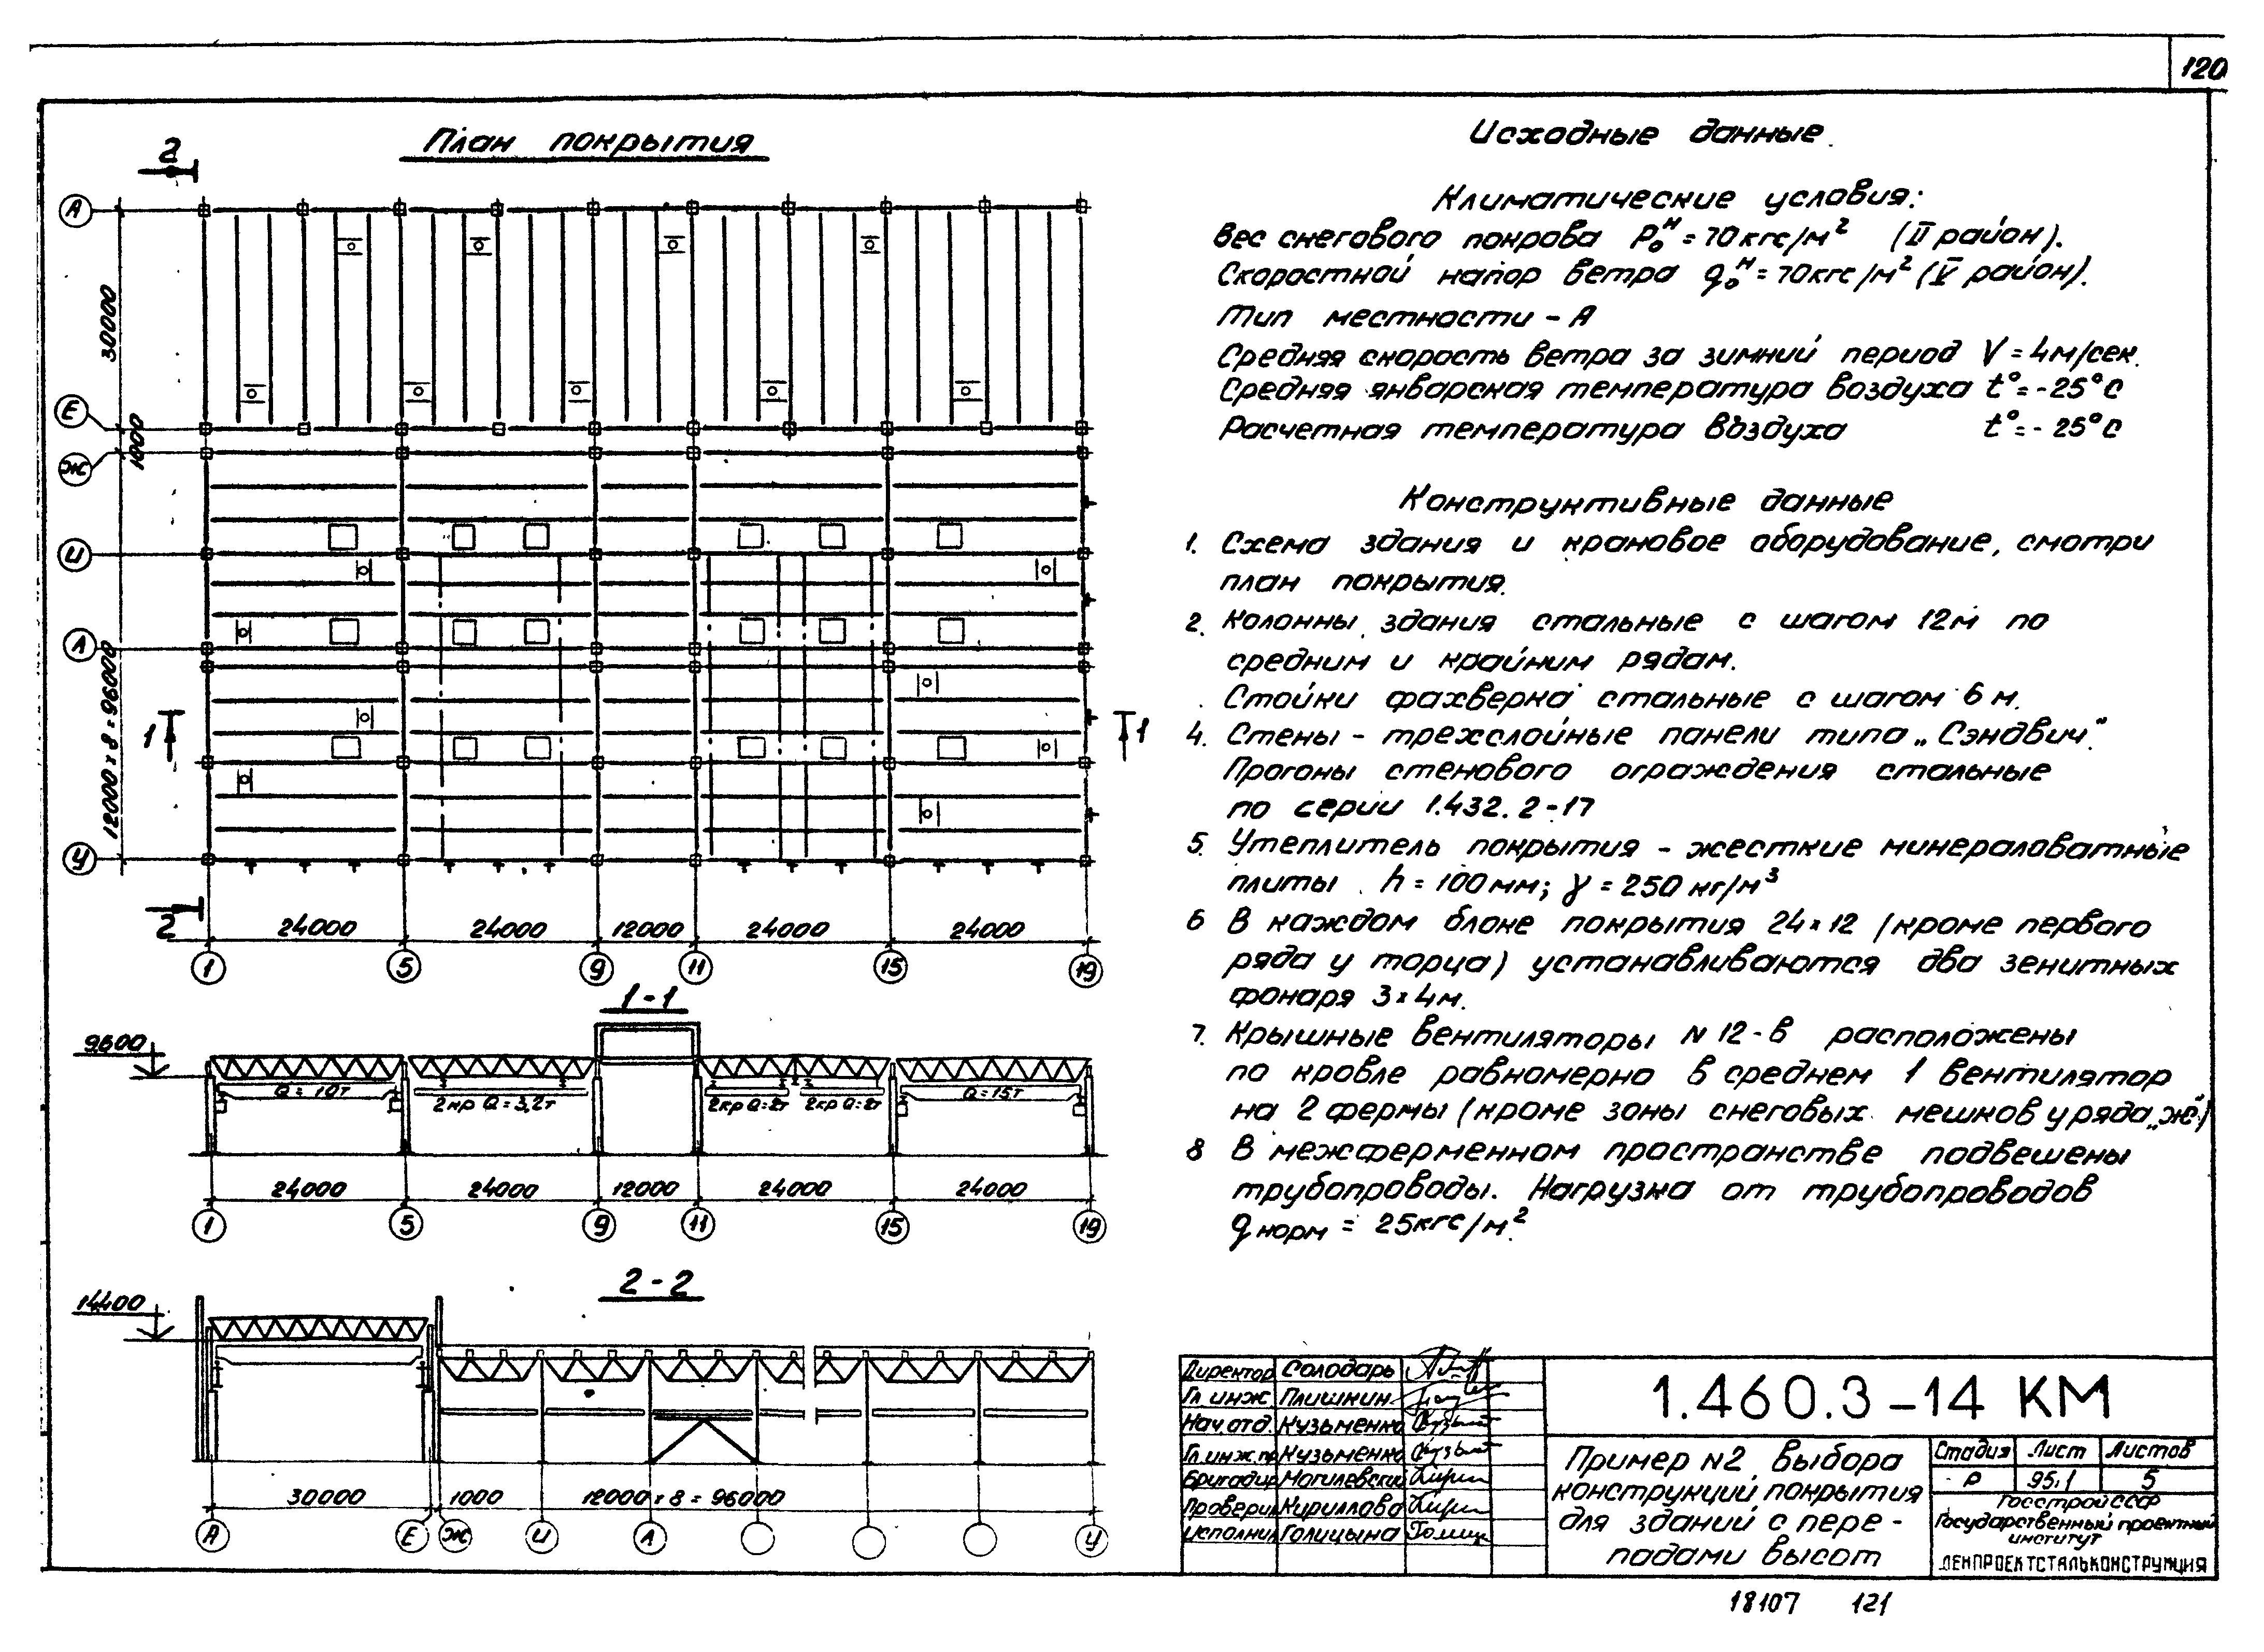 120
План покрытия
2
А
30000
Е
1000
Ж
И
Л
12000 x 8 = 96000
1
1
У
2
24000 24000 12000 24000 24000
1 5 9 11 15 19
1-1
9.600
Q = 10т 2 кр Q = 3,2т 2кр Q = 2т 2кр Q = 2т Q = 15т
24000 24000 12000 24000 24000
1 5 9 11 15 19
2-2
14.400
30000 1000 12000 x 8 = 96000
А Е Ж И Л У
Исходные данные.
Климатические условия:
Вес снегового покрова Pₒᴴ = 70кгс/м² (II район).
Скоростной напор ветра qₒᴴ = 70кгс/м² (V район).
Тип местности - А
Средняя скорость ветра за зимний период V = 4м/сек.
Средняя январская температура воздуха t° = -25°С
Расчетная температура воздуха t° = -25°С
Конструктивные данные
1. Схема здания и крановое оборудование, смотри
план покрытия.
2. Колонны здания стальные с шагом 12м по
средним и крайним рядам.
Стойки фахверка стальные с шагом 6 м.
4. Стены - трехслойные панели типа „Сэндвич“.
Прогоны стенового ограждения стальные
по серии 1.432.2-17
5. Утеплитель покрытия - жесткие минераловатные
плиты h = 100мм; γ = 250 кг/м³
6 В каждом блоке покрытия 24x12 (кроме первого
ряда у торца) устанавливаются два зенитных
фонаря 3x4м.
7. Крышные вентиляторы N 12-в расположены
по кровле равномерно в среднем 1 вентилятор
на 2 фермы (кроме зоны снеговых мешков у ряда „Ж“)
8 В межферменном пространстве подвешены
трубопроводы. Нагрузка от трубопроводов
qнорм = 25кгс/м².
Директор Солодарь
Гл. инж Плишкин
Нач. отд. Кузьменко
Гл. инж. пр Кузьменко
Бригадир Могилевский
Проверил Кириллова
Исполнил Голицына
1.460.3-14 КМ
Пример N2 выбора
конструкций покрытия
для зданий с пере-
падами высот
Стадия Лист Листов
Р 95.1 5
Госстрой СССР
Государственный проектный
институт
ЛЕНПРОЕКТСТАЛЬКОНСТРУКЦИЯ
18107 121